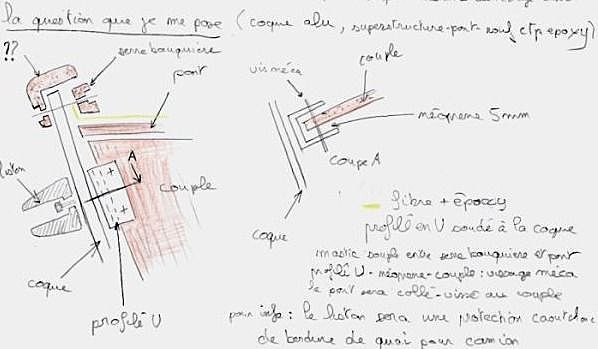 la question que je me pose (coque alu, superstructure-pont rouf ctp epoxy)
??
serre bauquière
pont
vis méca
couple
néoprene 5mm
A
coupe A
liston
couple
coque
coque
profilé U
fibre + épaxy
profilé en U soudé à la coque
mastic souple entre serre bauquière et pont
profilé U - néoprene - couple : vissage méca
le pont sera collé-vissé au couple
pour info : le liston sera une protection caoutchouc
de bordure de quai pour camion